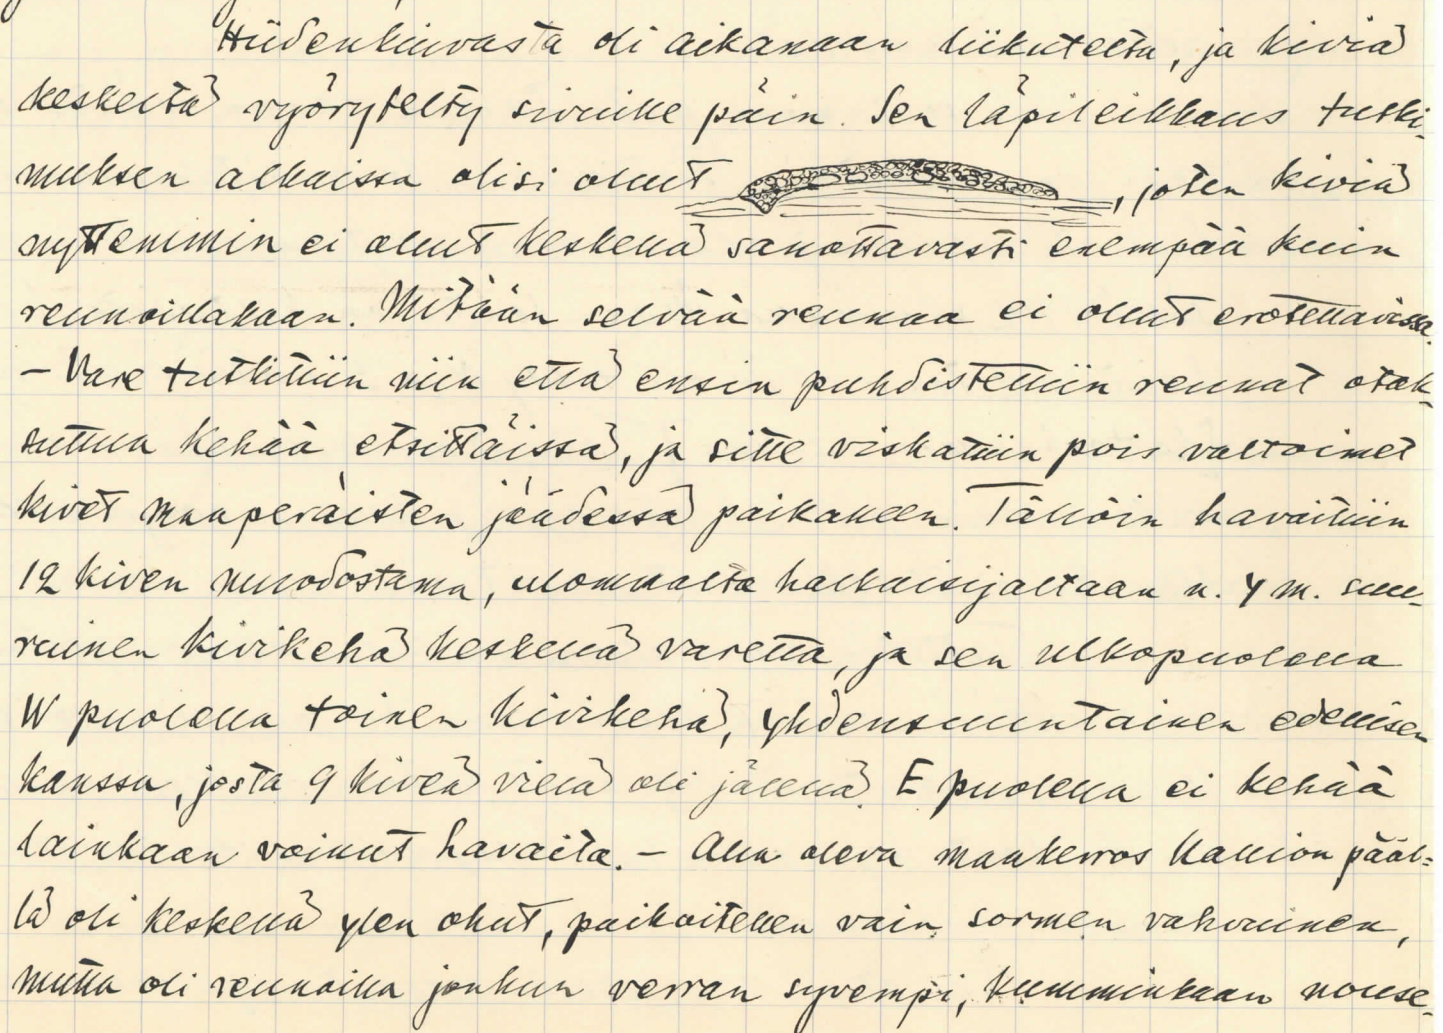 Hiidenkiuvasta oli aikanaan liikuteltu, ja kiviä
keskeltä vyörytelty sivuille päin. Sen läpileikkaus tutki-
muksen alkaissa olisi ollut , joten kiviä
nyttemmin ei ollut keskellä sanottavasti enempää kuin
reunoillakaan. Mitään selvää reunaa ei ollut erotettavissa.
– Vare tutkittiin niin että ensin puhdistettiin reunat otak-
suttua kehää etsittäissä, ja sitte viskattiin pois valtoimet
kivet maaperäisten jäädessä paikalleen. Tällöin havaittiin
12 kiven muodostama, ulommalta halkaisijaltaan n. 4 m. suu-
ruinen kivikehä keskellä varetta, ja sen ulkopuolella
W puolella toinen kivikehä, yhdensuuntainen edellisen
kanssa, josta 9 kiveä vielä oli jälellä. E puolella ei kehää
lainkaan voinut havaita. – Alla oleva maakerros kallion pääl-
lä oli keskellä ylen ohut, paikoitellen vain sormen vahvuinen,
mutta oli reunoilla jonkun verran syvempi, kumminkaan nouse-